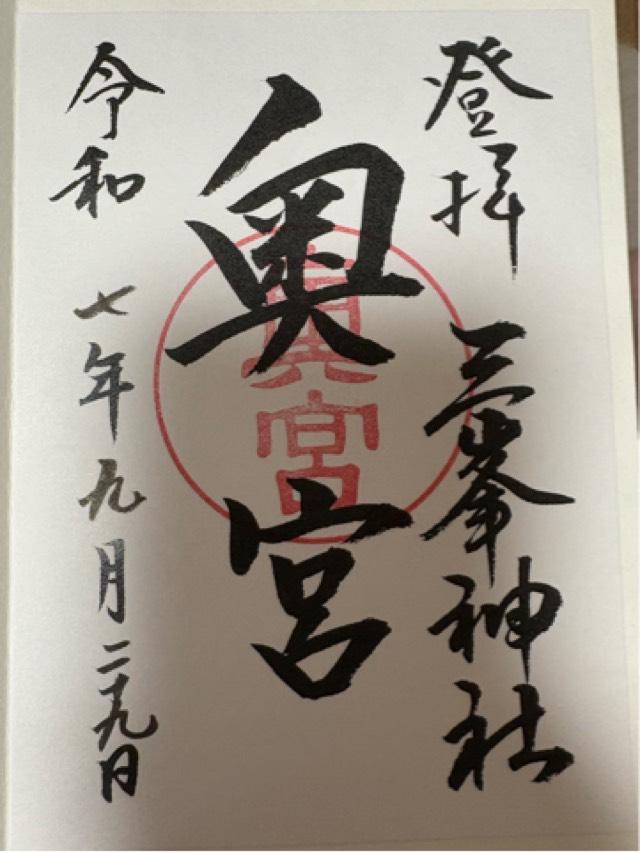 登拝 三峯神社
奥宮
奥宮
令和 七年九月二十九日